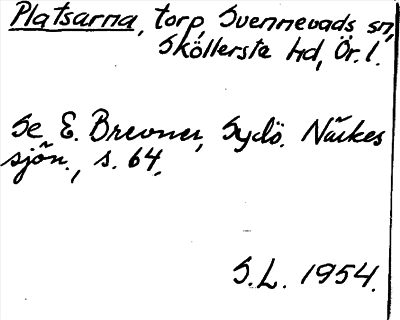 Platsarna, torp, Svennevads sn,
Sköllersta hd, Ör. l.
Se E. Brevner, Sydö. Närkes
sjön., s. 64.
S.L. 1954.